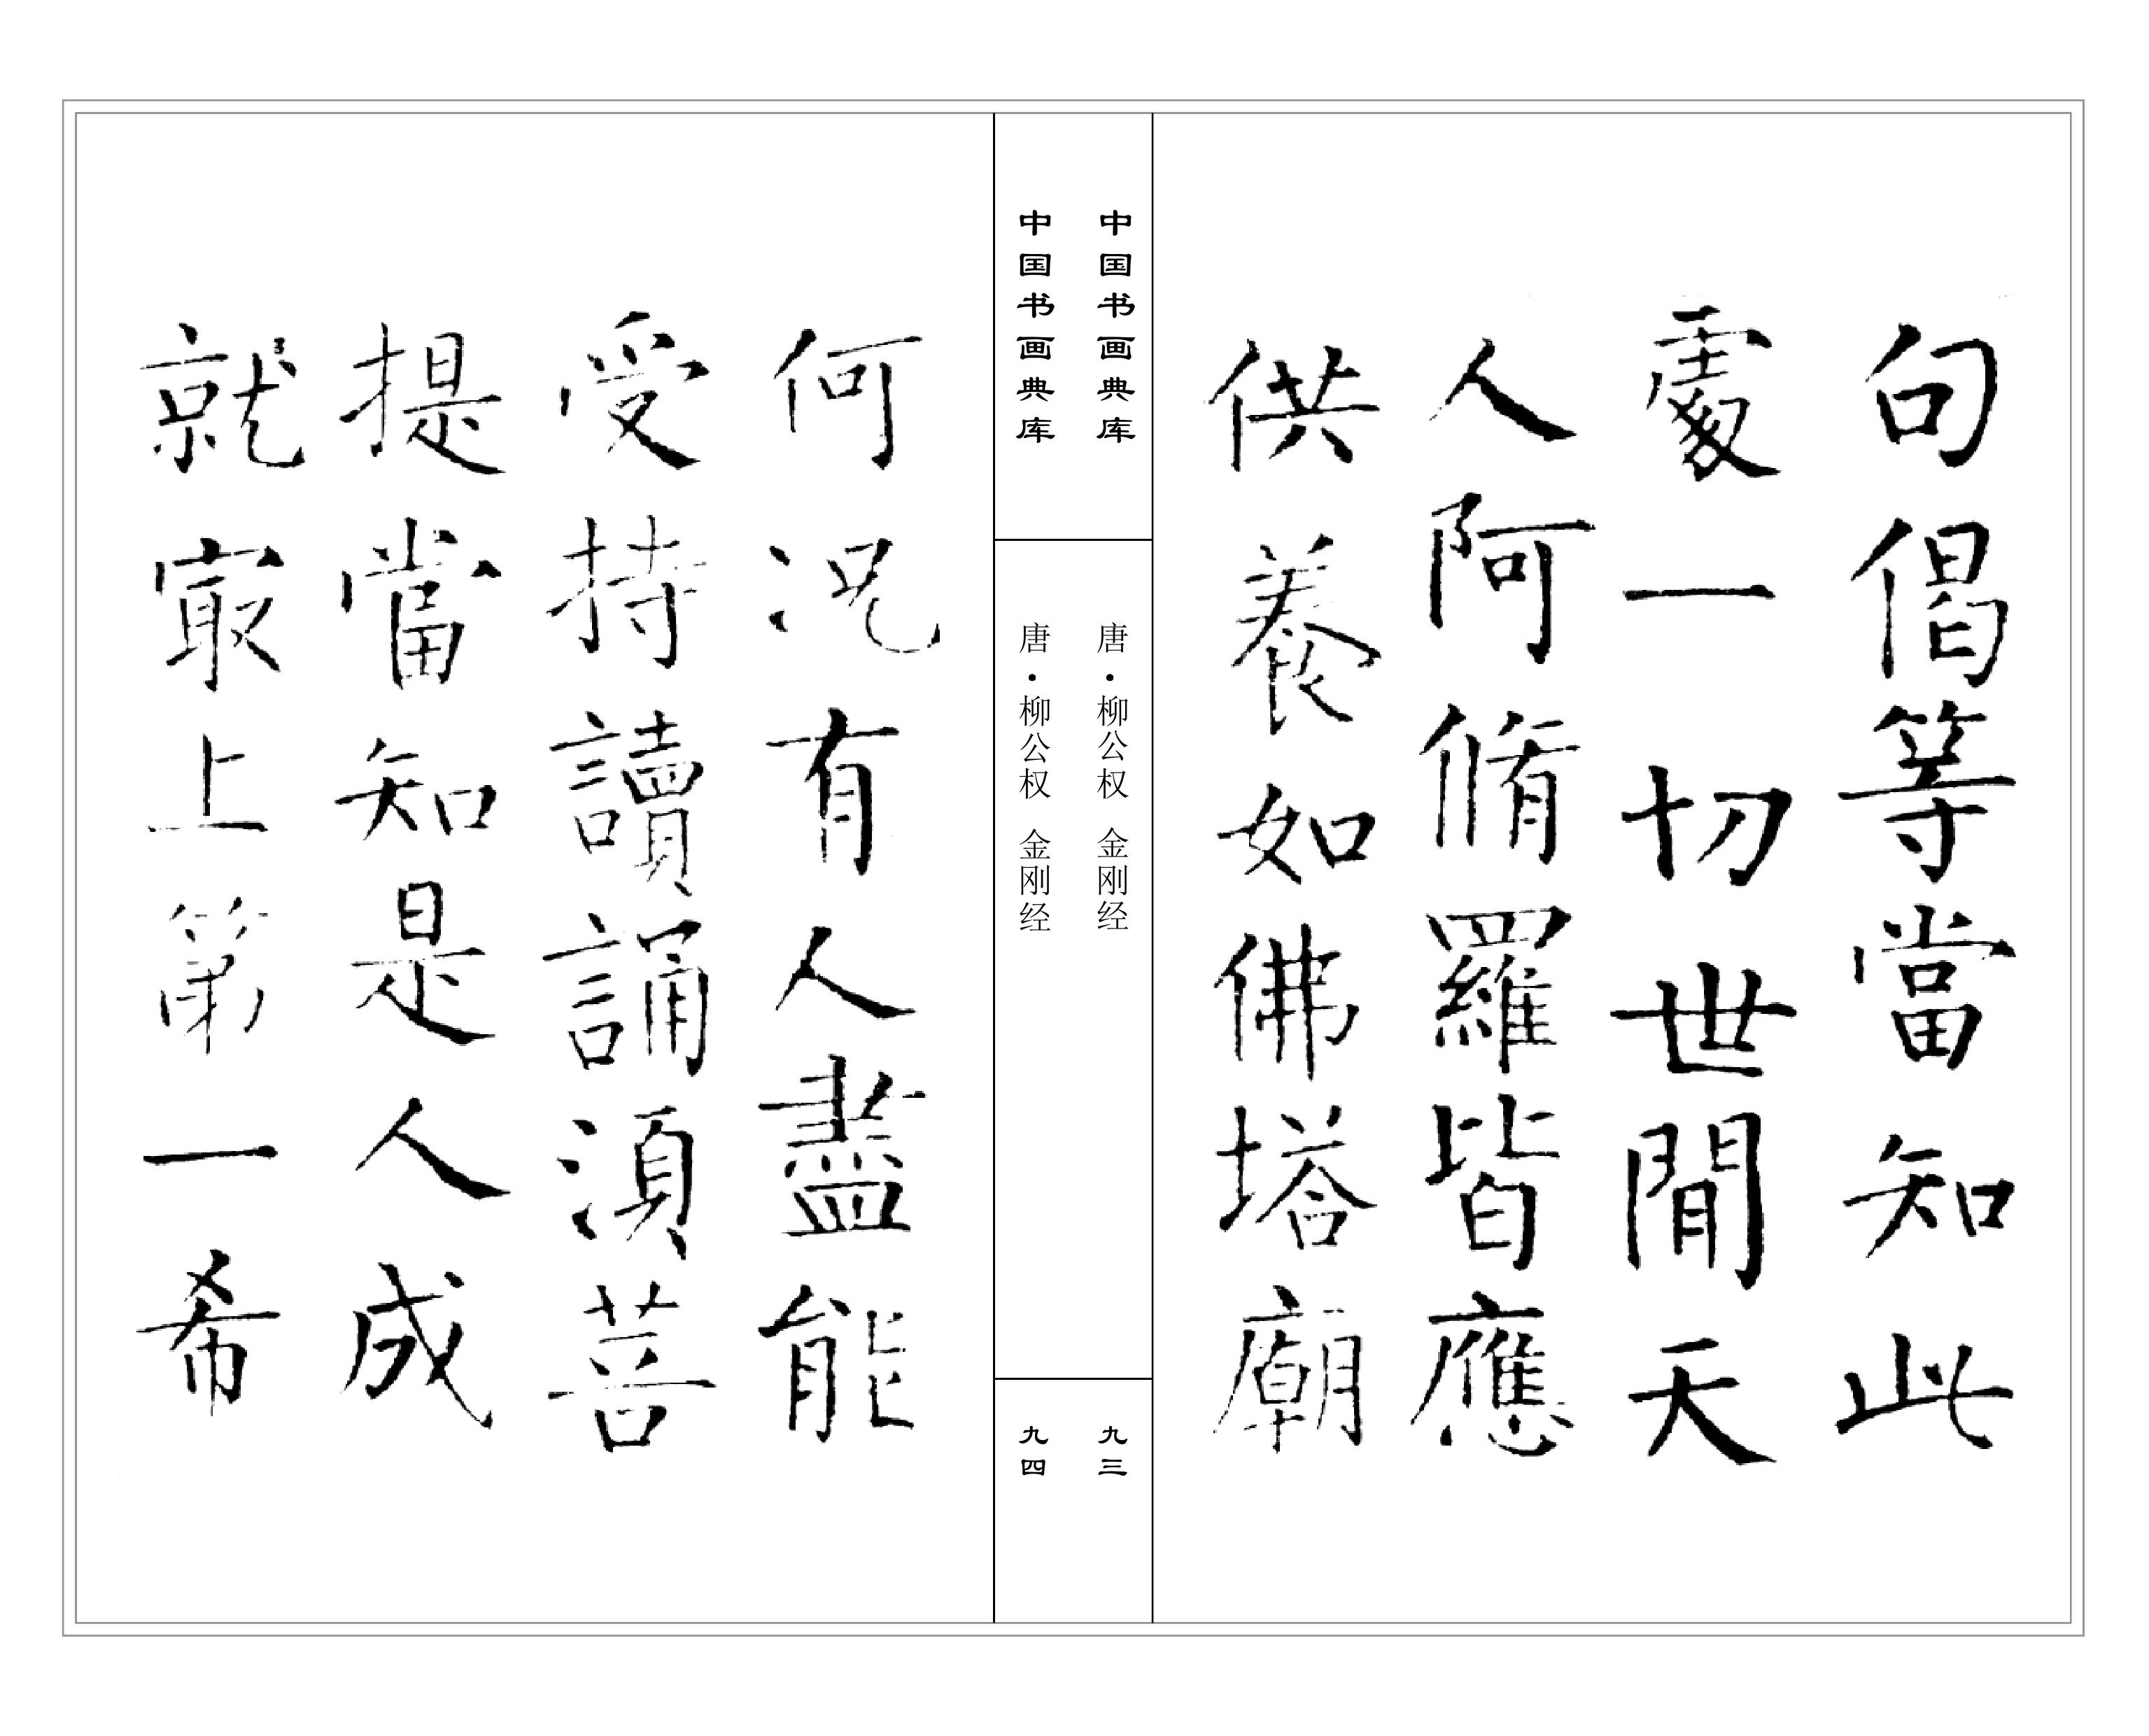 句偈等當知此
處一切世間天
人阿脩羅皆應
供養如佛塔廟
中国书画典库
唐·柳公权 金刚经
九三
中国书画典库
唐·柳公权 金刚经
九四
何況有人盡能
受持讀誦須菩
提當知是人成
就冣上第一希